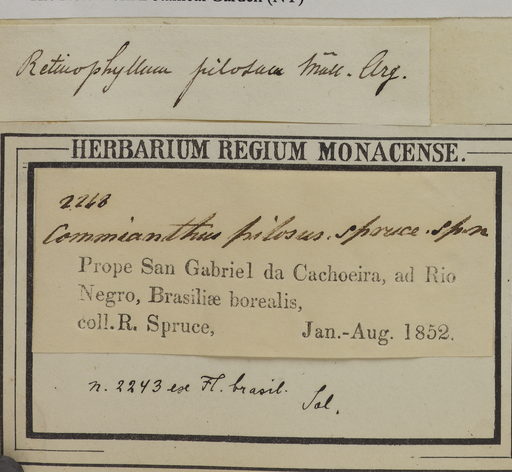 Retinophyllum pilosum Müll. Arg.
HERBARIUM REGIUM MONACENSE.
2268
Commianthus pilosus. spruce. sp. n
Prope San Gabriel da Cachoeira, ad Rio
Negro, Brasiliæ borealis,
coll. R. Spruce, Jan.-Aug. 1852.
n. 2243 ex Fl. brasil.